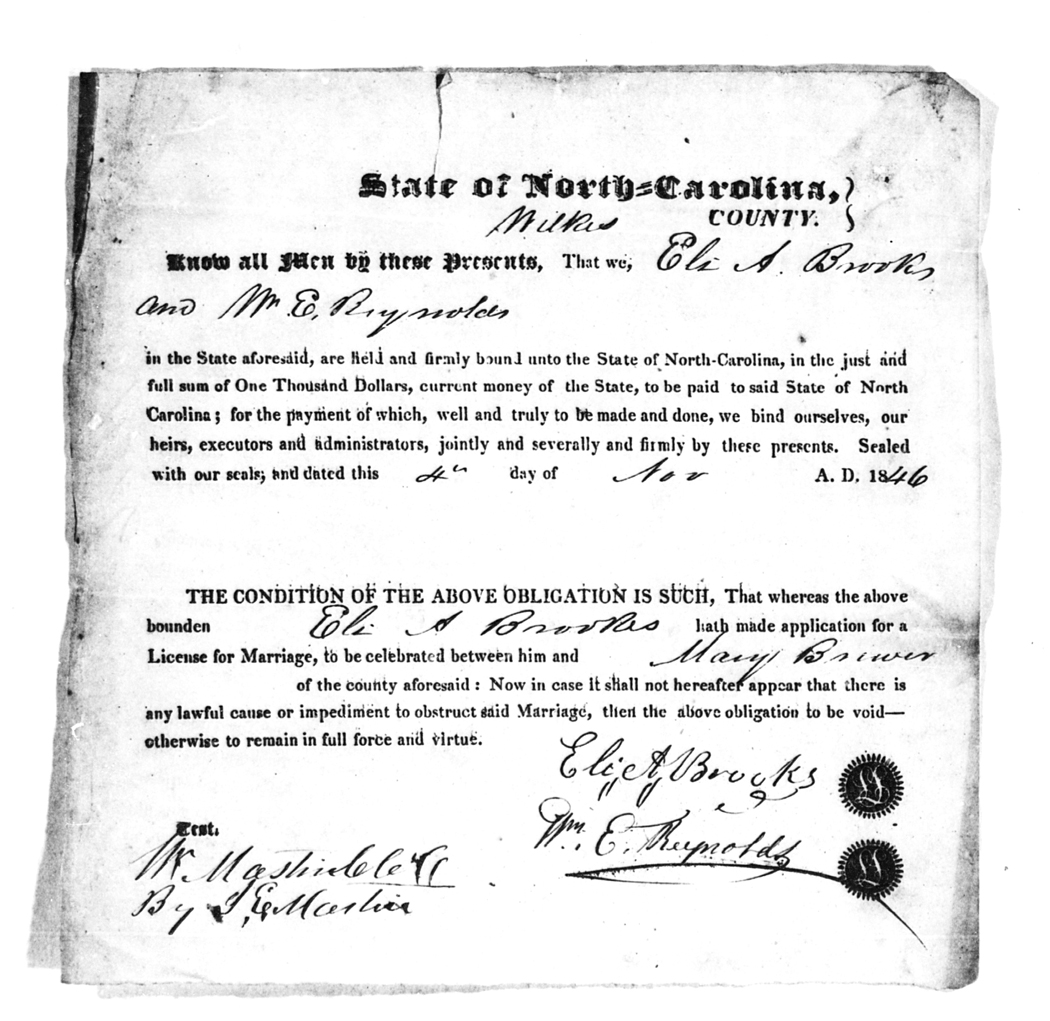 State of North-Carolina,
Wilkes COUNTY.
Know all Men by these Presents, That we, Eli A. Brooks
and Wm E. Reynolds
in the State aforesaid, are held and firmly bound unto the State of North-Carolina, in the just and
full sum of One Thousand Dollars, current money of the State, to be paid to said State of North
Carolina; for the payment of which, well and truly to be made and done, we bind ourselves, our
heirs, executors and administrators, jointly and severally and firmly by these presents. Sealed
with our seals; and dated this 4th day of Nov A. D. 1846
THE CONDITION OF THE ABOVE OBLIGATION IS SUCH, That whereas the above
bounden Eli A Brookes hath made application for a
License for Marriage, to be celebrated between him and Mary Brewer
of the county aforesaid: Now in case it shall not hereafter appear that there is
any lawful cause or impediment to obstruct said Marriage, then the above obligation to be void—
otherwise to remain in full force and virtue.
Eli A Brooks
Wm. E. Reynolds
Test.
W Mastin
By Mastin